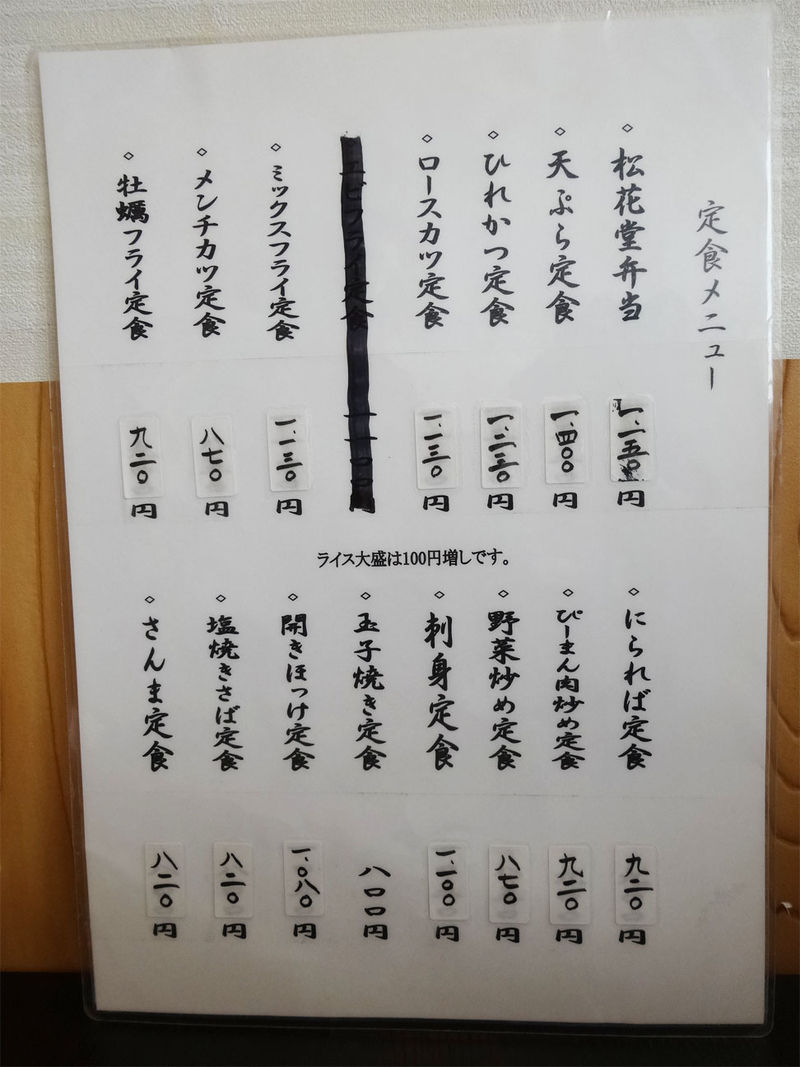 定食メニュー
◇松花堂弁当 一、一五〇円
◇天ぷら定食 一、四〇〇円
◇ひれかつ定食 一、二三〇円
◇ロースカツ定食 一、一三〇円
エビフライ定食
◇ミックスフライ定食 一、一三〇円
◇メンチカツ定食 八七〇円
◇牡蠣フライ定食 九二〇円
ライス大盛は100円増しです。
◇にられば定食 九二〇円
◇ぴーまん肉炒め定食 九二〇円
◇野菜炒め定食 八七〇円
◇刺身定食 一、二〇〇円
◇玉子焼き定食 八〇〇円
◇開きほっけ定食 一、〇八〇円
◇塩焼きさば定食 八二〇円
◇さんま定食 八二〇円